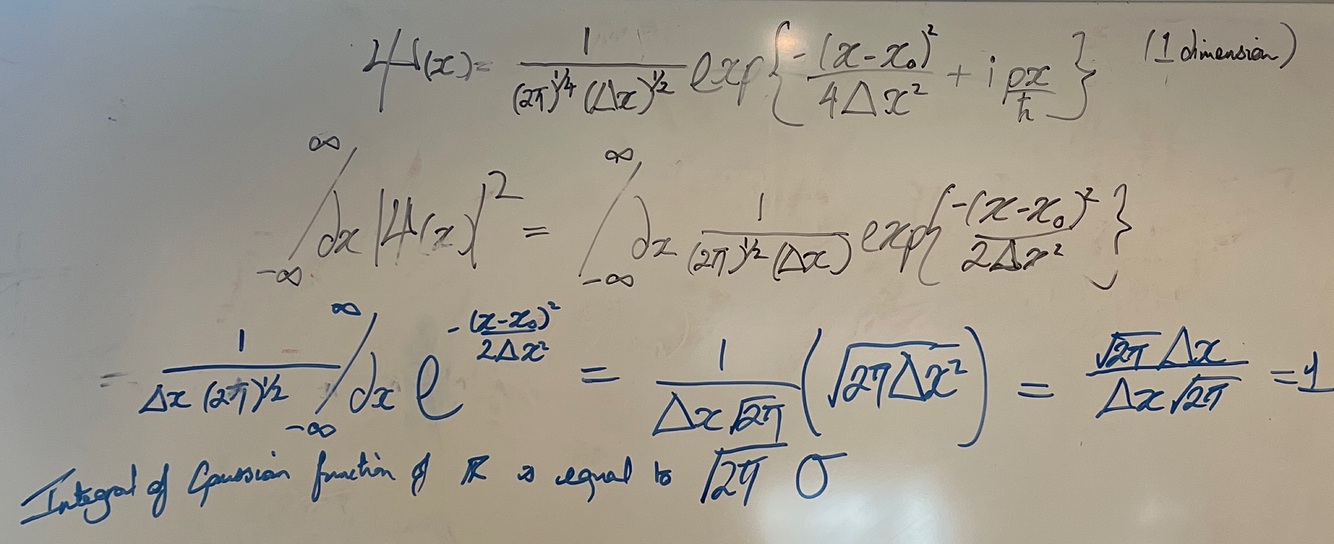 Ψ(x) = 1/((2π)^1/4 (Δx)^1/2) exp{-(x-x₀)²/4Δx² + i px/ħ} (1 dimension)
∫_-∞^∞ dx |Ψ(x)|² = ∫_-∞^∞ dx 1/((2π)^1/2 (Δx)) exp{-(x-x₀)²/2Δx²}
= 1/(Δx (2π)^1/2) ∫_-∞^∞ dx e^-(x-x₀)²/2Δx² = 1/(Δx√2π) (√2πΔx²) = √2π Δx/(Δx√2π) = 1
Integral of Gaussian function of ℝ is equal to √2π σ